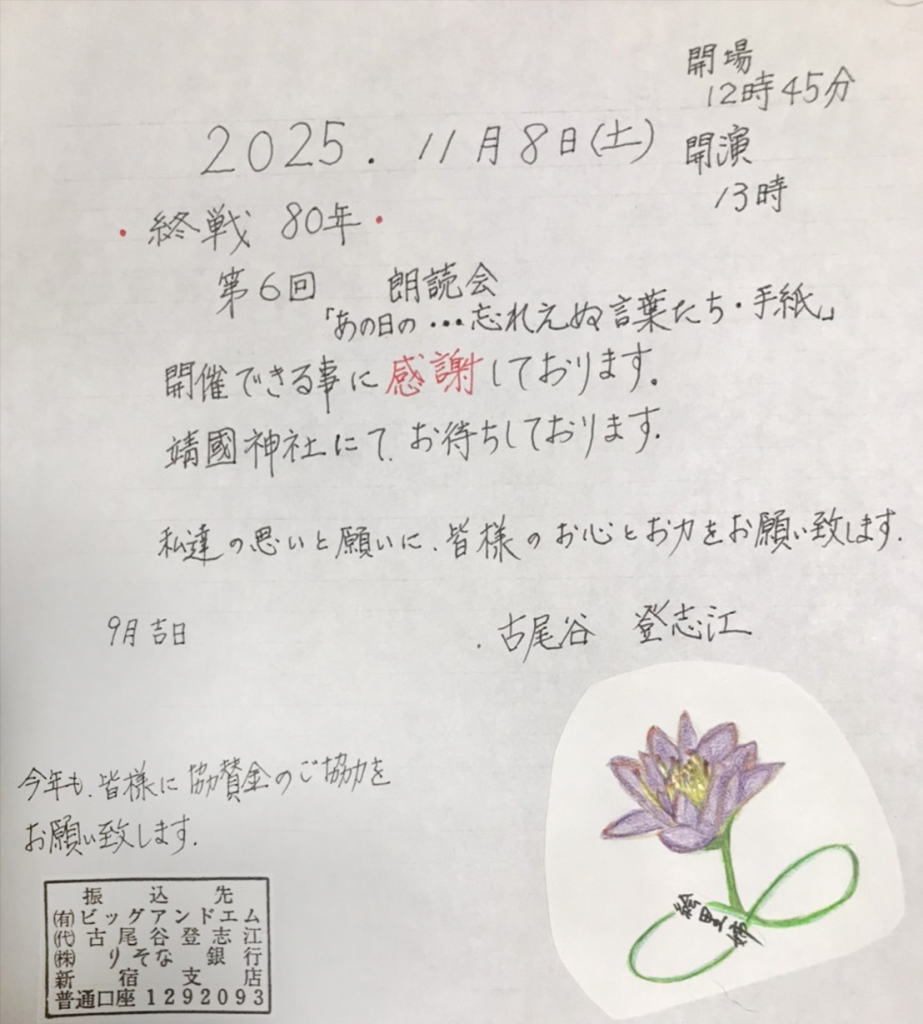 開場
12時45分
2025. 11月8日(土)
開演
13時
・終戦 80年・
第6回 朗読会
「あの日の・・・忘れえぬ言葉たち・手紙」
開催できる事に感謝しております。
靖國神社にて、お待ちしております.
私達の思いと願いに、皆様のお心とお力をお願い致します.
9月吉日
古尾谷 登志江
今年も、皆様に協賛金のご協力を
お願い致します.
振込先
(有)ビッグアンドエム
(代)古尾谷登志江
(株)りそな銀行
新宿支店
普通口座1292093